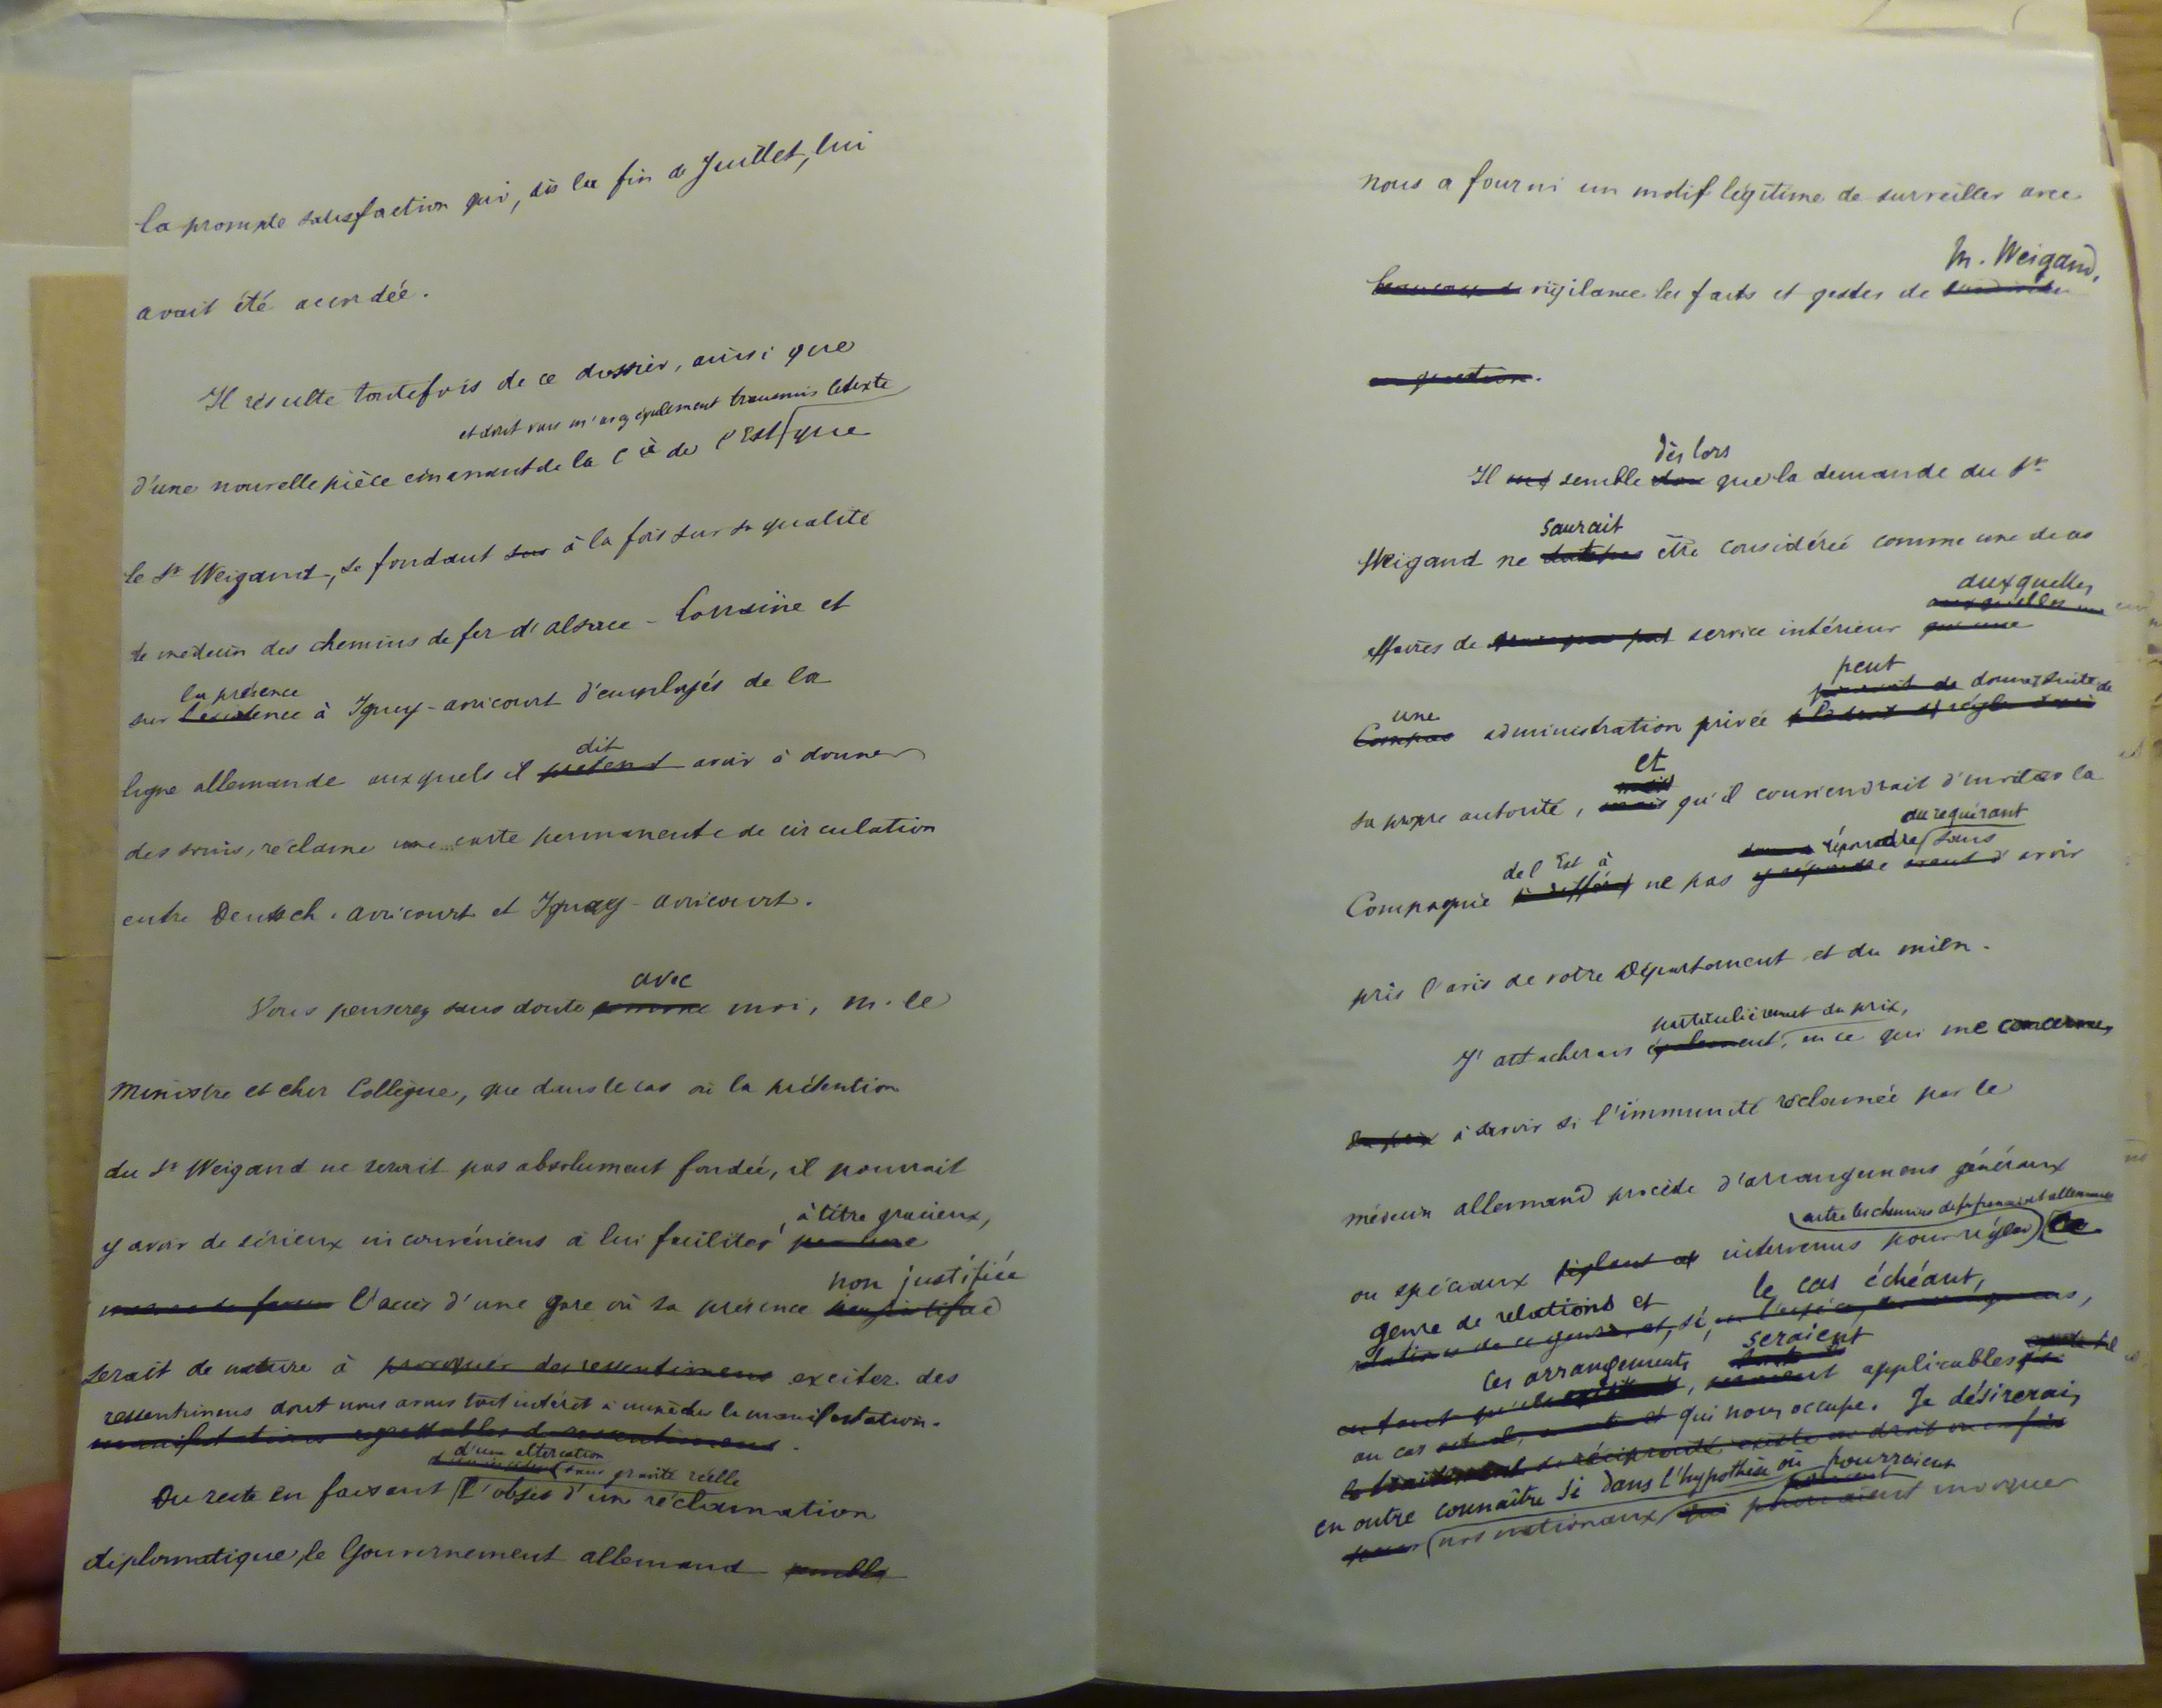 la prompte satisfaction qui, dès la fin de Juillet, lui
avait été accordée.
Il résulte toutefois de ce dossier, ainsi que
et dont vous m'avez également transmis le texte
d'une nouvelle pièce émanant de la Cie de l'Est que
le Sr Weigand, se fondant sur à la fois sur sa qualité
de médecin des chemins de fer d'alsace-Lorraine et
la présence
sur l'existence à Igney-avricourt d'employés de la
dit
ligne allemande auxquels il prétend avoir à donner
des soins, réclame une carte permanente de circulation
entre Deutsch-avricourt et Igney-avricourt.
avec
Vous penserez sans doute comme moi, M. le
Ministre et cher Collègue, que dans le cas où la prétention
du Sr Weigand ne serait pas absolument fondée, il pourrait
à titre gracieux,
y avoir de sérieux inconvéniens à lui faciliter par une
non justifiée
l'accès d'une gare où sa présence
serait de nature à provoquer des ressentimens exciter des
ressentimens dont nous avons tout intérêt à empêcher la manifestation.
manifestations regrettables de ressentimens.
d'une altercation
sans gravité réelle
Du reste en faisant l'objet d'une réclamation
diplomatique, le Gouvernement allemand semble
nous a fourni un motif légitime de surveiller avec
M. Weigand.
beaucoup de vigilance les faits et gestes de
en question.
dès lors
Il me semble donc que la demande du Sr
saurait
Weigand ne être considérée comme une de ces
auxquelles
auxquelles une
affaires de service intérieur que une
peut
donner suite de
une
administration privée
et
mais
sa propre autorité, mais qu'il conviendrait d'inviter la
du requérant
de l'Est à
répondre sans
Compagnie ne pas y répondre avant d'avoir
pris l'avis de votre Département et du mien.
particulièrement du prix,
J'attacherais également, en ce qui me concerne,
du prix à savoir si l'immunité réclamée par le
médecin allemand procède d'arrangemens généraux
entre les chemins de fer français et allemands
ou spéciaux intervenus pour régler ce
le cas échéant,
genre de relations et
relations de ce genre, et, si,
seraient
ces arrangements
applicables
au cas qui nous occupe. Je désirerais
en outre connaître si dans l'hypothèse où pourraient
nos nationaux qui pourraient invoquer